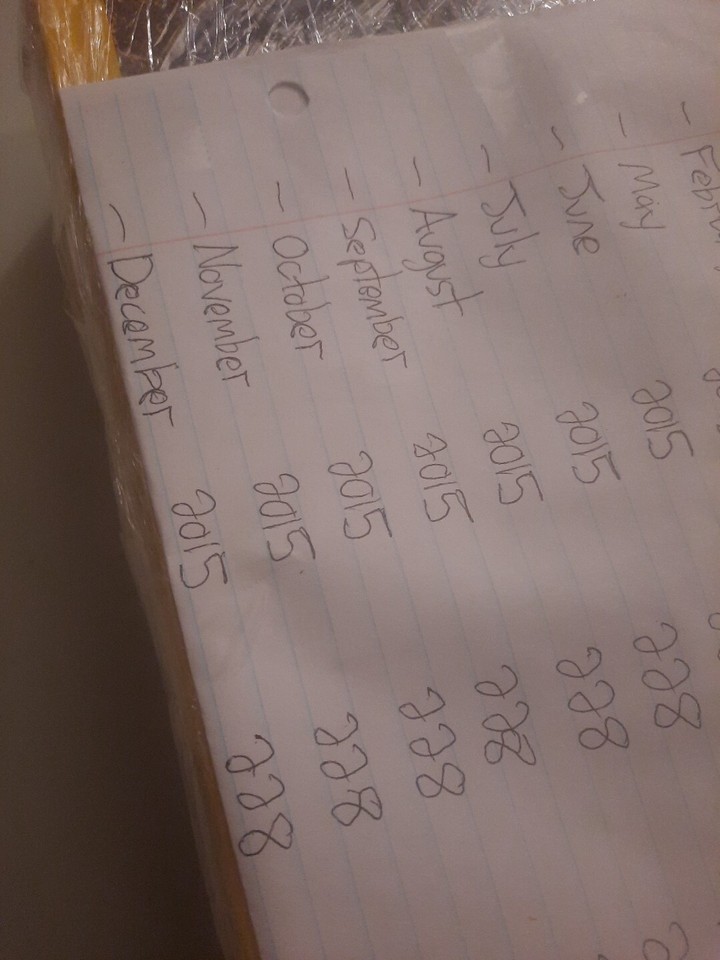 - May
- June 2015
- July 2015 228
- August 2015 228
- September 2015 228
- October 2015 228
- November 2015 228
- December 2015 228